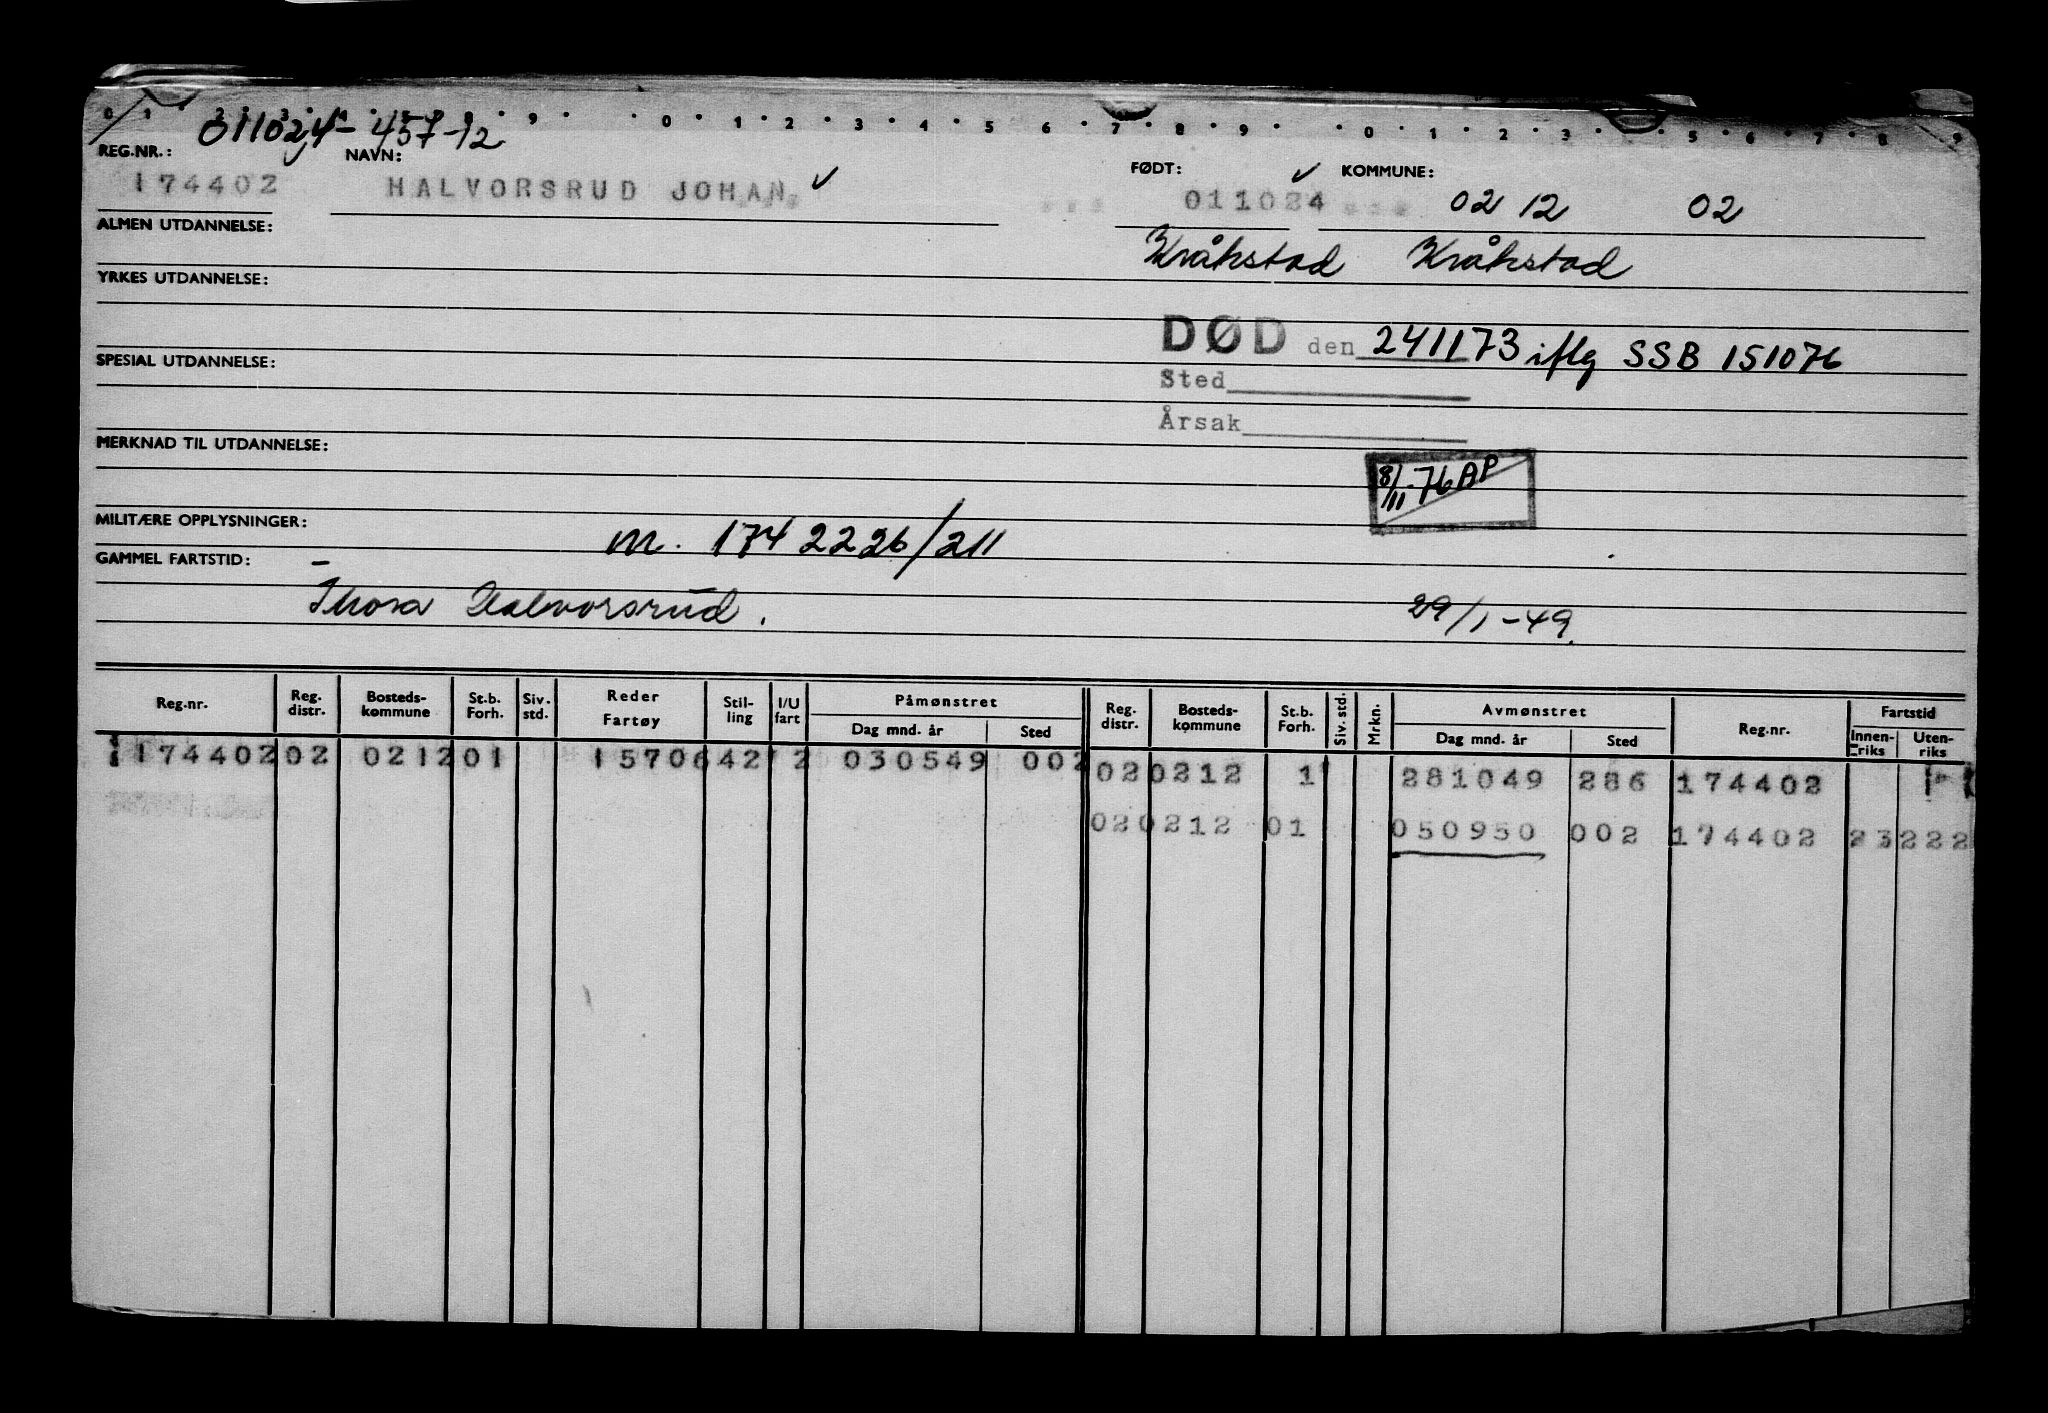 0 1 2 3 9 0 1 2 3 4 5 6 7 8 9 0 1 2 3 5 6 7 8 9
011024-457-12
REG.NR.: NAVN: FØDT: KOMMUNE:
174402 HALVORSRUD JOHAN ✓ 011024 ✓ 02 12 02
ALMEN UTDANNELSE:
Kråkstad Kråkstad
YRKES UTDANNELSE:
DØD den 241173 iflg SSB 151076
SPESIAL UTDANNELSE:
Sted
Årsak
MERKNAD TIL UTDANNELSE:
8/11-76 AP
MILITÆRE OPPLYSNINGER:
m. 174 2226/211
GAMMEL FARTSTID:
Thora Halvorsrud. 29/1-49.
Reg.nr. Reg. distr. Bosteds-kommune St.b. Forh. Siv. std. Reder Fartøy Stil-ling I/U fart Påmønstret Dag mnd. år Sted Reg. distr. Bosteds-kommune St.b. Forh. Siv. std. Mrkn. Avmønstret Dag mnd. år Sted Reg.nr. Fartstid Innen-riks Uten-riks
174402 02 0212 01 15706 42 2 030549 002
02 0212 1 281049 286 174402
02 0212 01 050950 002 174402 23 222